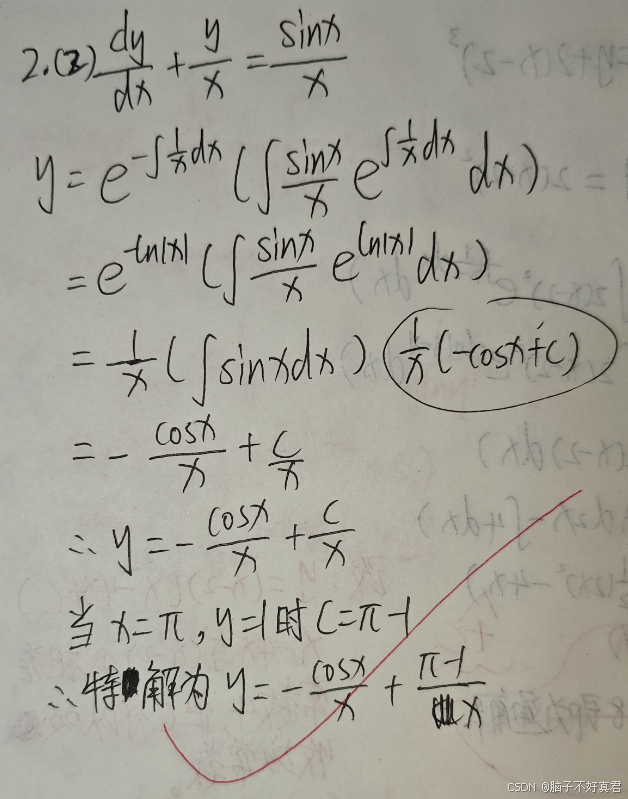 2.(2) dy/dx + y/x = sinx/x
y = e^{-∫1/x dx} (∫ sinx/x e^{∫1/x dx} dx)
= e^{-ln|x|} (∫ sinx/x e^{ln|x|} dx)
= 1/x (∫ sinx dx) 1/x (-cosx+c)
= - cosx/x + c/x
∴ y = - cosx/x + c/x
当 x=π, y=1时 C=π-1
∴ 特解为 y = - cosx/x + π-1/x
CSDN @脑子不好真君